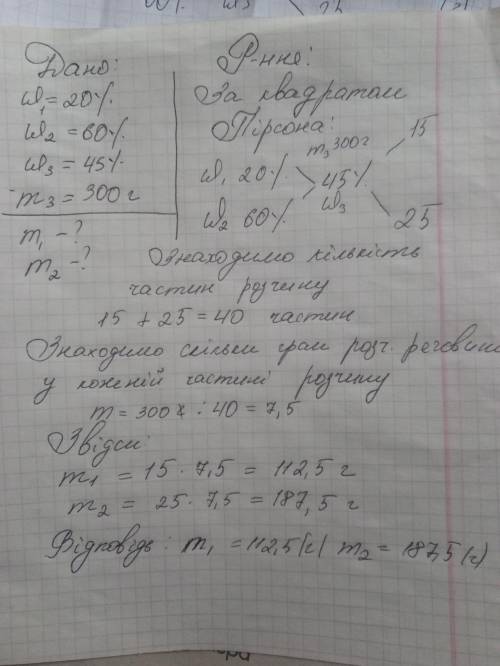 Дано:
ω₁ = 20%
ω₂ = 60%
ω₃ = 45%
m₃ = 300 г
m₁ - ?
m₂ - ?
Р-ння:
За квадратом
Пірсона:
m₃ 300 г 15
ω₁ 20% 45%
ω₂ 60% ω₃ 25
Знаходимо кількість
частин розчину
15 + 25 = 40 частин
Знаходимо скільки грам розч. речовини
у кожній частині розчину
m = 300 г : 40 = 7,5
Звідси:
m₁ = 15 · 7,5 = 112,5 г
m₂ = 25 · 7,5 = 187,5 г
Відповідь: m₁ = 112,5 (г) m₂ = 187,5 (г)